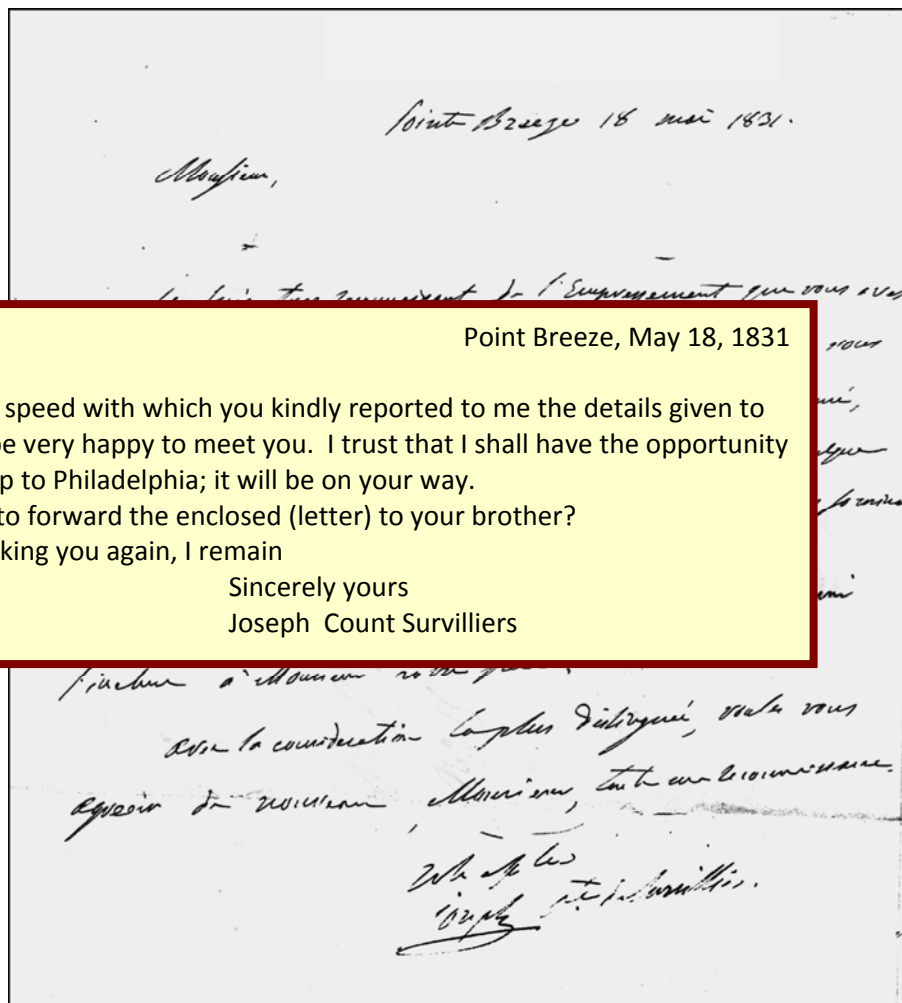 Pointe Breeze 18 mai 1831.
Monsieur,
Je suis tres reconnaissant de l'Empressement que vous avez
vous
Point Breeze, May 18, 1831
speed with which you kindly reported to me the details given to
be very happy to meet you. I trust that I shall have the opportunity
p to Philadelphia; it will be on your way.
to forward the enclosed (letter) to your brother?
king you again, I remain
Sincerely yours
Joseph Count Survilliers
l'incluse a Monsieur votre
avec la consideration la plus distinguée, voulez vous
agreer de nouveau, Monsieur, toute ma reconnaissance.
Joseph Cte de Survilliers.